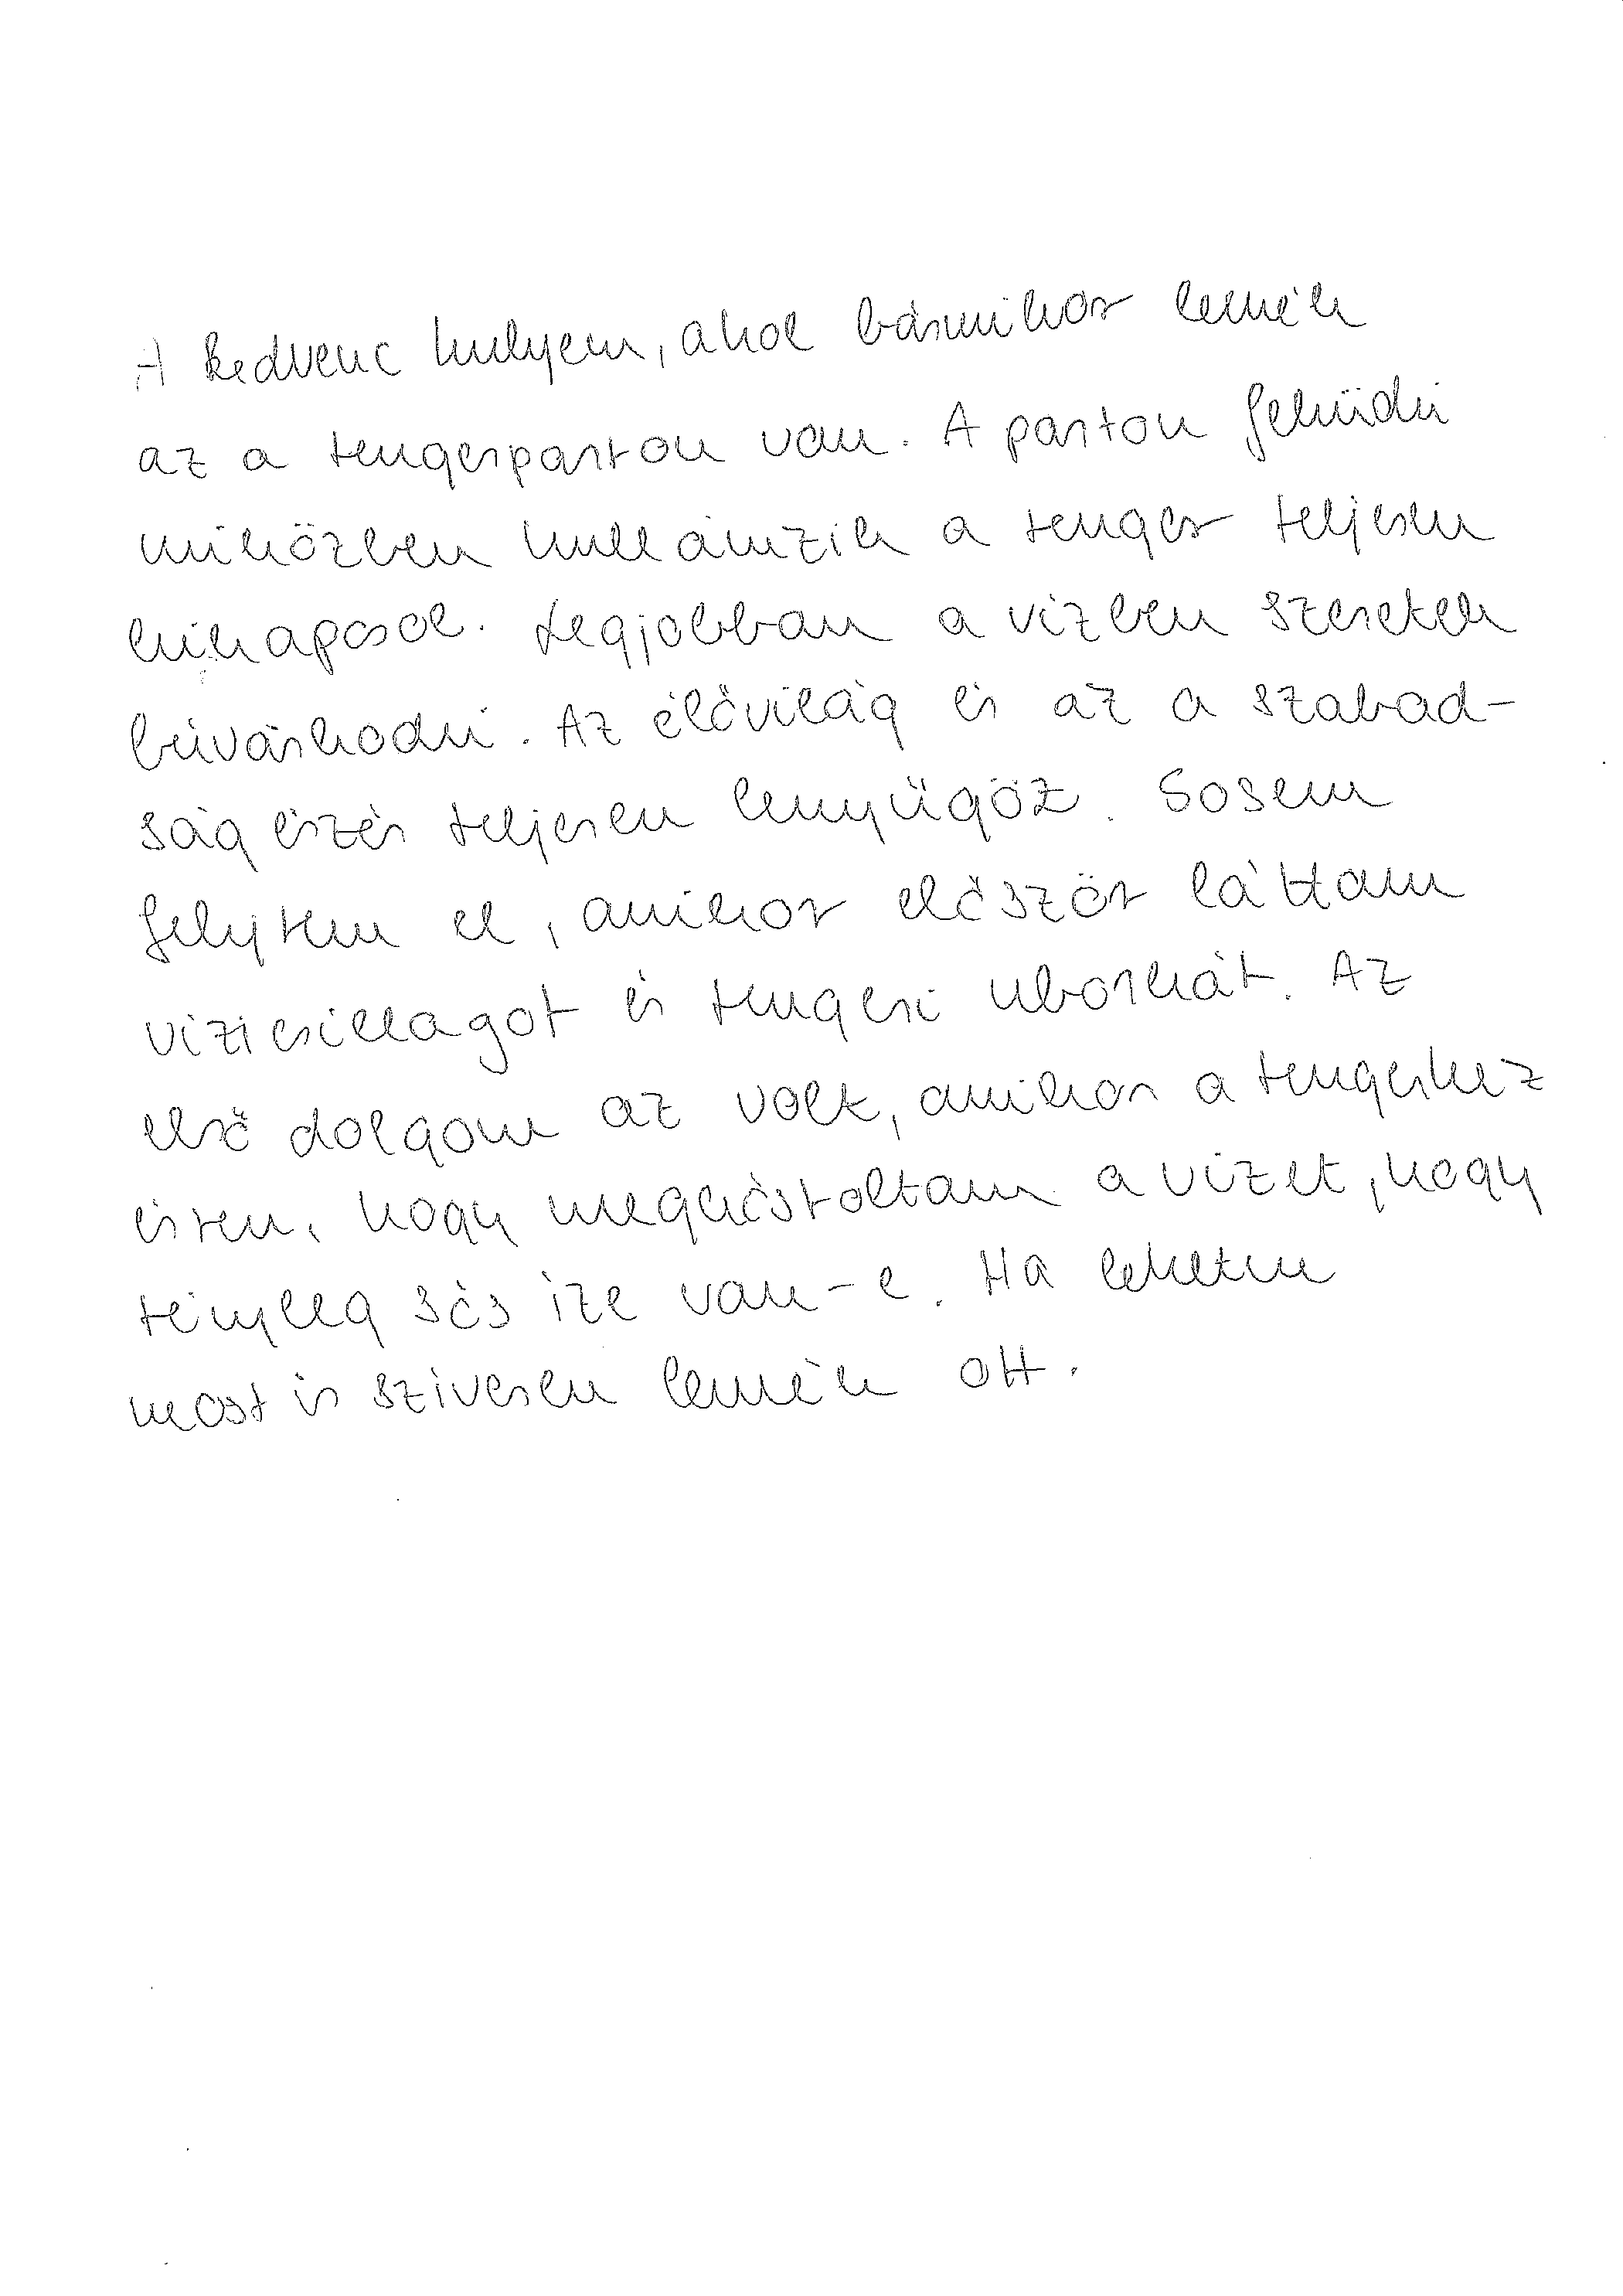 A kedvenc helyem, ahol bármikor lennék
az a tengerparton van. A parton feküdni
miközben hullámzik a tenger teljesen
kikapcsol. Legjobban a vízben szeretek
búvárkodni. Az élővilág és az a szabad-
ság érzés teljesen lenyügöz. Sosem
felejtem el, amikor először láttam
vízicsillagot és tengeri uborkát. Az
első dolgom az volt, amikor a tengerhez
értem, hogy megkóstoltam a vizet, hogy
tényleg sós íze van-e. Ha lehetne
most is szívesen lennék ott.